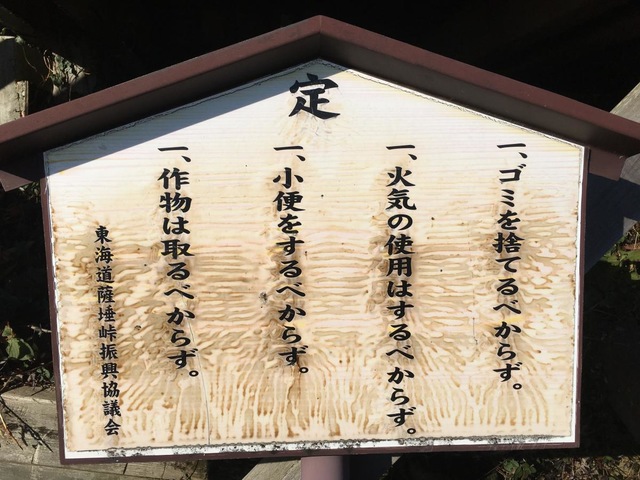 定
一、ゴミを捨てるべからず。
一、火気の使用はするべからず。
一、小便をするべからず。
一、作物は取るべからず。
東海道薩埵峠振興協議会